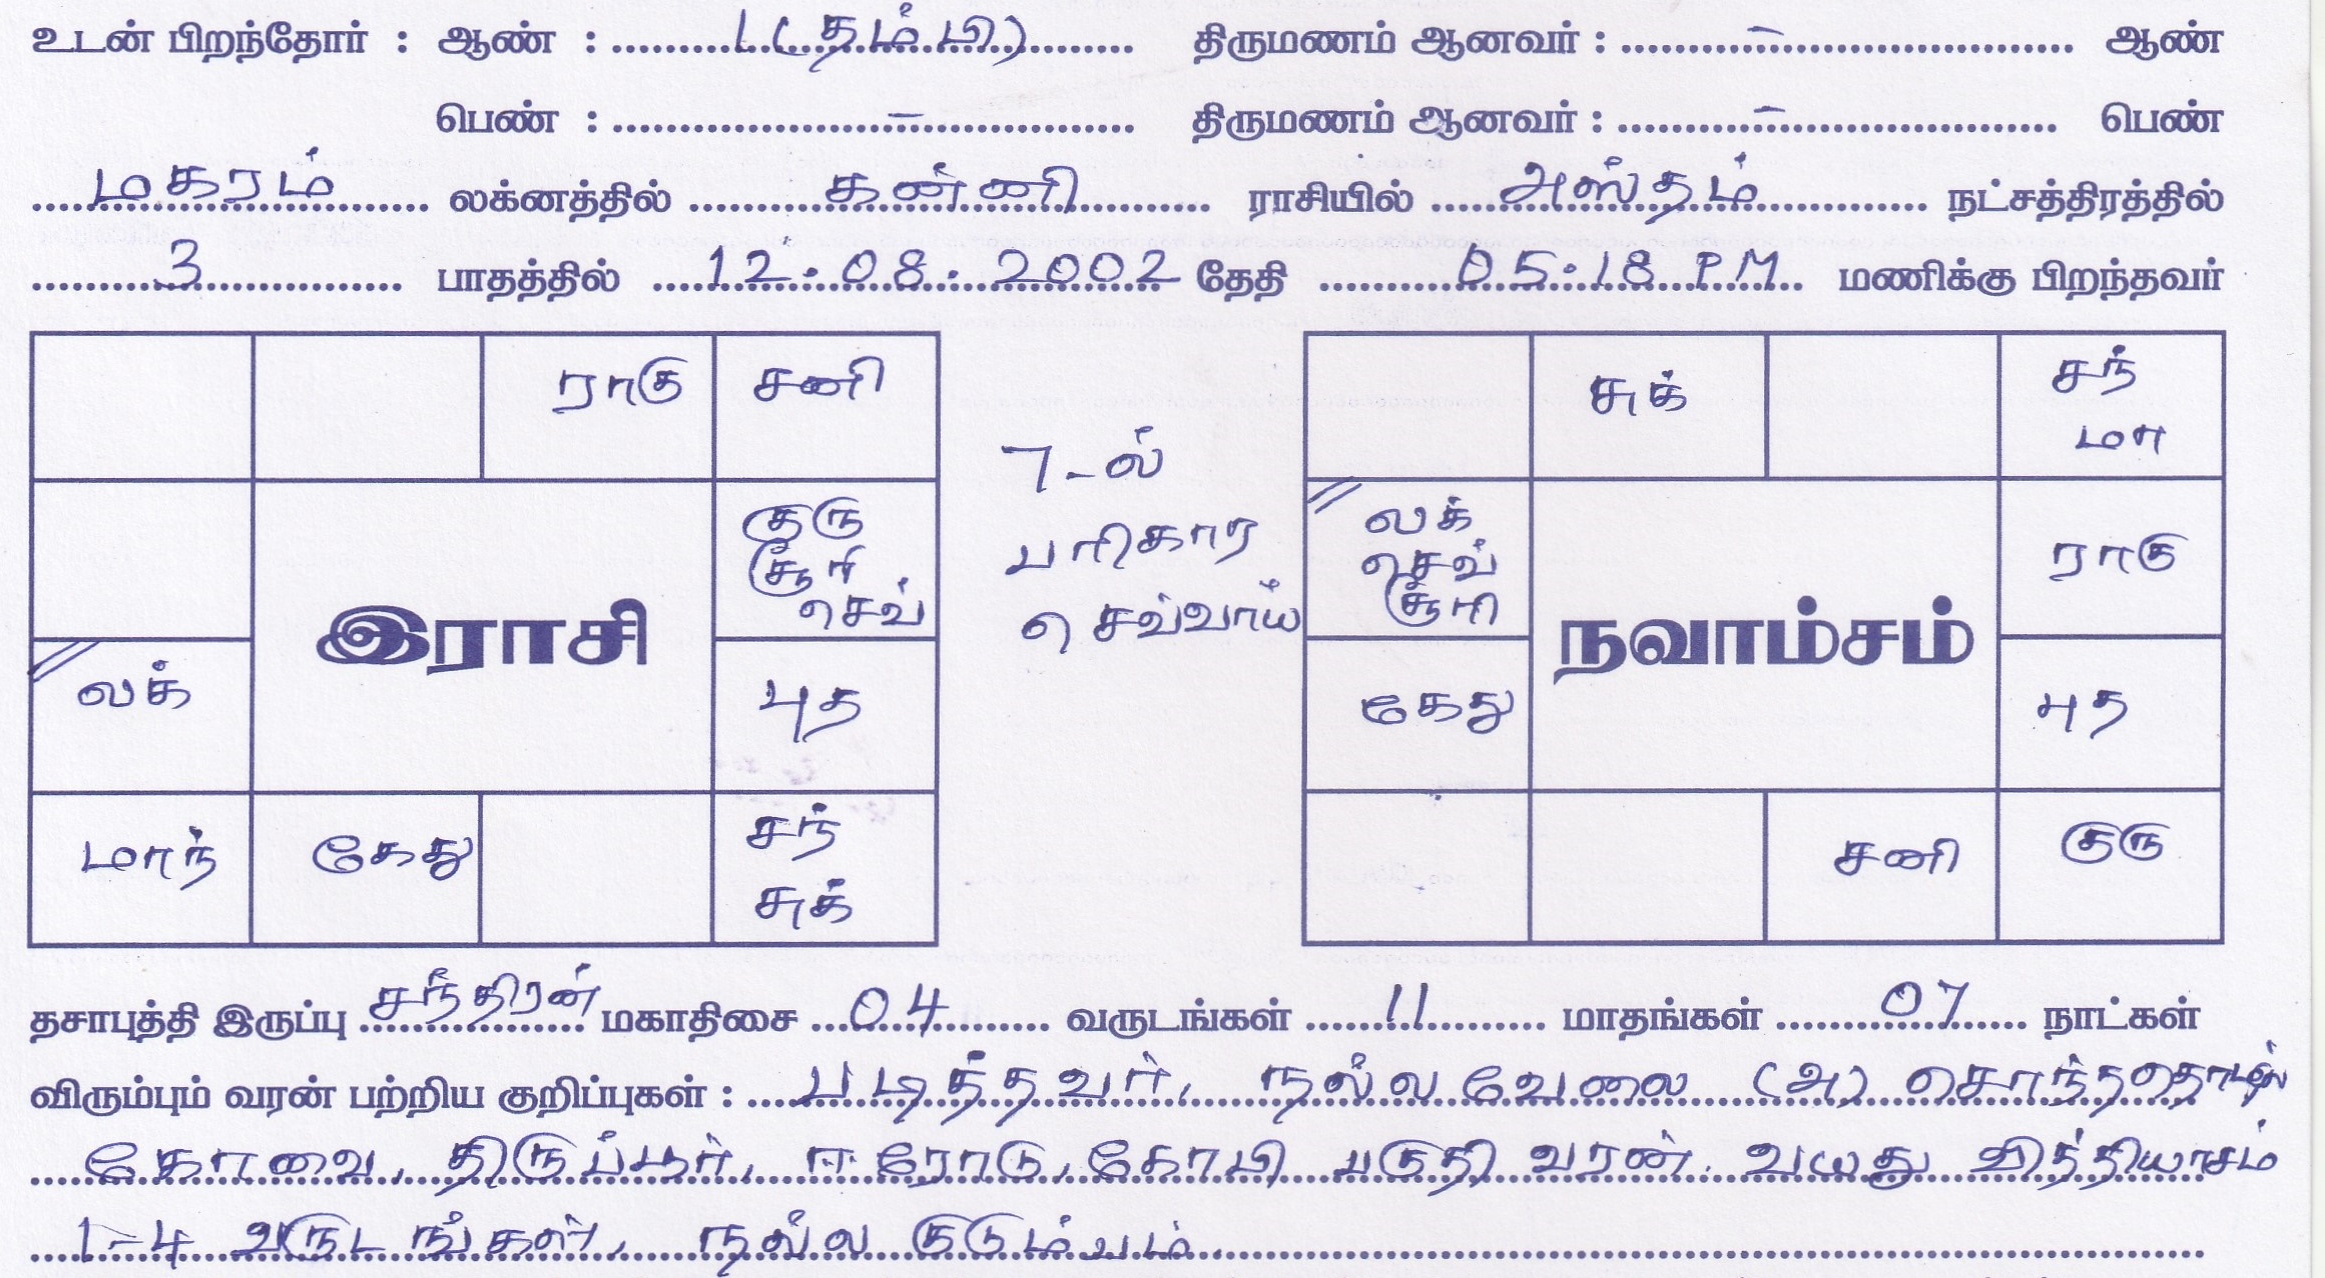 உடன் பிறந்தோர் : ஆண் : 1 (தம்பி) திருமணம் ஆனவர் : – ஆண்
பெண் : – திருமணம் ஆனவர் : – பெண்
மகரம் லக்னத்தில் கன்னி ராசியில் அஸ்தம் நட்சத்திரத்தில்
3 பாதத்தில் 12.08.2002 தேதி 05:18 PM மணிக்கு பிறந்தவர்
ராகு சனி
குரு
சூரி
செவ்
இராசி
லக்
புத
மாந்
கேது
சந்
சுக்
7-ல்
பரிகார
செவ்வாய்
சுக்
சந்
மா
லக்
செவ்
சூரி
ராகு
நவாம்சம்
கேது
புத
சனி
குரு
தசாபுத்தி இருப்பு சந்திரன் மகாதிசை 04 வருடங்கள் 11 மாதங்கள் 07 நாட்கள்
விரும்பும் வரன் பற்றிய குறிப்புகள் : படித்தவர், நல்ல வேலை (அ) சொந்ததொழில்
கோவை, திருப்பூர், ஈரோடு, கோபி பகுதி வரன். வயது வித்தியாசம்
1-4 வருடங்கள், நல்ல குடும்பம்